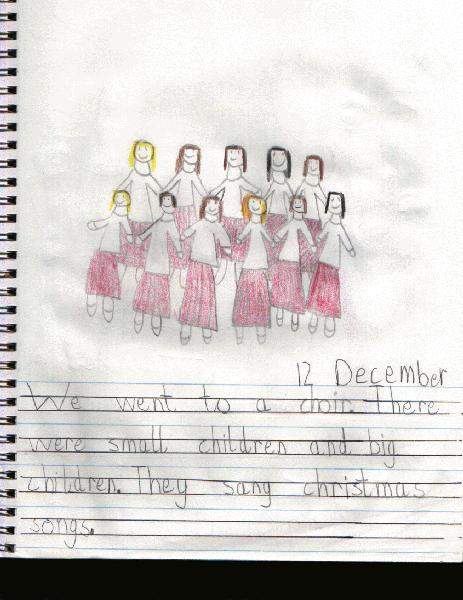 12 December
We went to a choir. There
were small children and big
children. They sang christmas
songs.